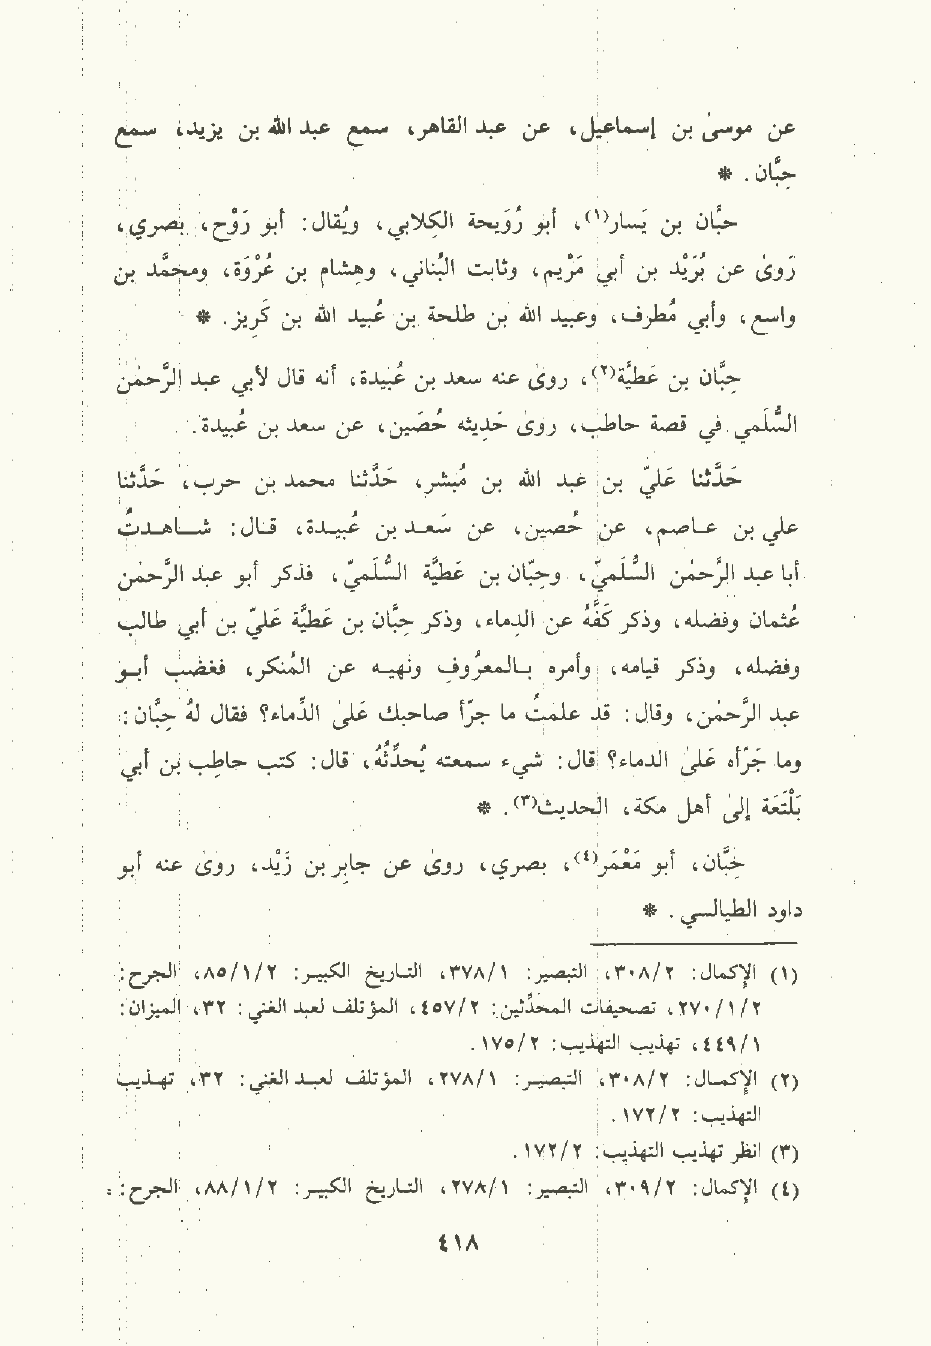 عن موسىٰ بن إسماعيل، عن عبد القاهر، سمع عبد الله بن يزيد، سمع
حِبَّان. *
حبَّان بن يَسار(١)، أبو رُوَيحة الكِلابي، ويُقال: أبو رَوْح، بصري،
رَوىٰ عن بُرَيْد بن أبي مَرْيم، وثابت البُناني، وهِشام بن عُرْوَة، ومحمَّد بن
واسع، وأبي مُطرف، وعبيد الله بن طلحة بن عُبيد الله بن كَرِيز. *
حِبَّان بن عَطيَّة(٢)، روىٰ عنه سعد بن عُبيدة، أنه قال لأبي عبد الرَّحمٰن
السُّلَمي في قصة حاطب، روىٰ حَدِيثه حُصَين، عن سعد بن عُبيدة.
حَدَّثنا عَليّ بن عبد الله بن مُبشر، حَدَّثنا محمد بن حرب، حَدَّثنا
علي بن عاصم، عن حُصين، عن سَعد بن عُبيدة، قال: شاهدتُ
أبا عبد الرَّحمٰن السُّلَميّ، وحِبَّان بن عَطيَّة السُّلَميّ، فذكر أبو عبد الرَّحمٰن
عُثمان وفضله، وذكر كَفَّهُ عن الدِماء، وذكر حِبَّان بن عَطيَّة عَليّ بن أبي طالب
وفضله، وذكر قيامه، وأمره بالمعرُوف ونهيه عن المُنكر، فغضب أبو
عبد الرَّحمٰن، وقال: قد علمتُ ما جرّأ صاحبك عَلىٰ الدِّماء؟ فقال لهُ حِبَّان:
وما جَرّأه عَلىٰ الدماء؟ قال: شيء سمعته يُحدِّثُهُ، قال: كتب حاطِب بن أبي
بَلْتَعَة إلىٰ أهل مكة، الحديث(٣). *
حِبَّان، أبو مَعْمَر(٤)، بصري، روىٰ عن جابِر بن زَيْد، روىٰ عنه أبو
داود الطيالسي. *
(١) الإكمال: ٣٠٨/٢، التبصير: ٣٧٨/١، التاريخ الكبير: ٨٥/١/٢، الجرح:
٢٧٠/١/٢، تصحيفات المحدِّثين: ٤٥٧/٢، المؤتلف لعبد الغني: ٣٢، الميزان:
٤٤٩/١، تهذيب التهذيب: ١٧٥/٢.
(٢) الإكمال: ٣٠٨/٢، التبصير: ٢٧٨/١، المؤتلف لعبد الغني: ٣٢، تهذيب
التهذيب: ١٧٢/٢.
(٣) انظر تهذيب التهذيب: ١٧٢/٢.
(٤) الإكمال: ٣٠٩/٢، التبصير: ٢٧٨/١، التاريخ الكبير: ٨٨/١/٢، الجرح: =
٤١٨